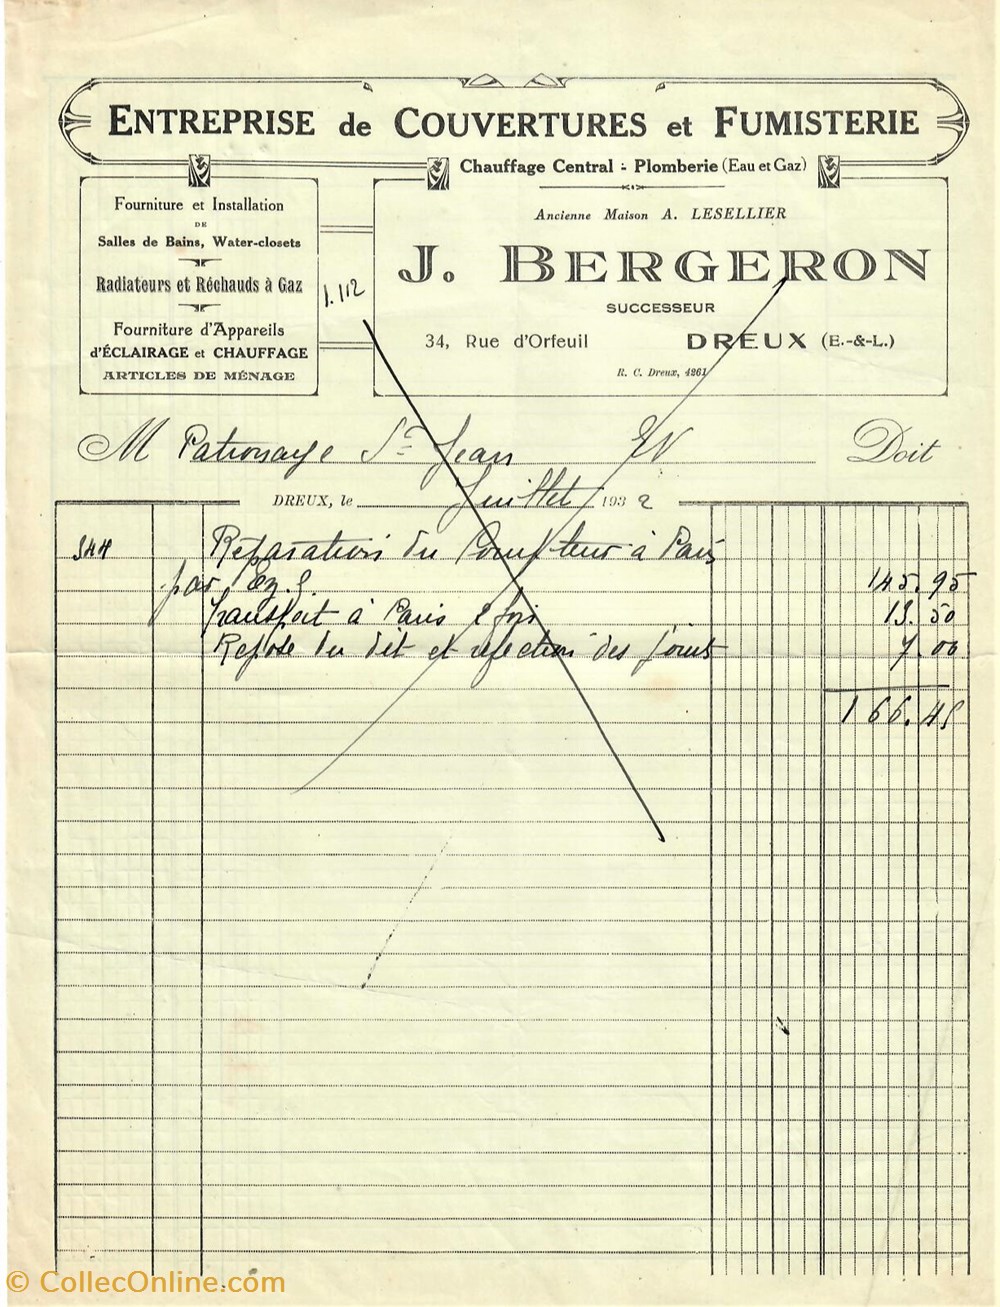 ENTREPRISE de COUVERTURES et FUMISTERIE
Chauffage Central - Plomberie (Eau et Gaz)
Fourniture et Installation
DE
Salles de Bains, Water-closets
Radiateurs et Réchauds à Gaz
Fourniture d'Appareils
d'ÉCLAIRAGE et CHAUFFAGE
ARTICLES DE MÉNAGE
1.112
Ancienne Maison A. LESELLIER
J. BERGERON
SUCCESSEUR
34, Rue d'Orfeuil DREUX (E.-&-L.)
R. C. Dreux, 4261
M Patronage St Jean Doit
DREUX, le Juillet 1932
Réparations du Compteur à Paris
par 145.95
Transport à Paris 2 fois 13.50
Repose du dit et réfection des joints 7.00
166.45
© CollecOnline.com